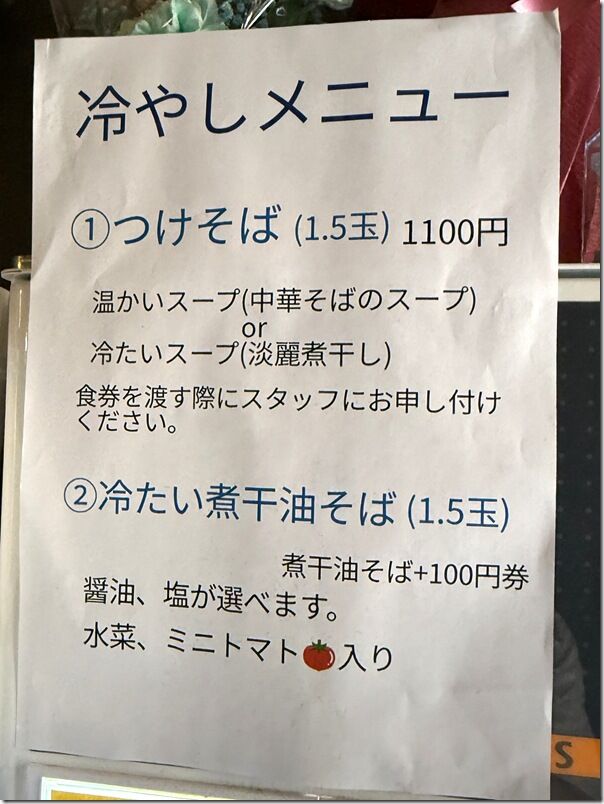 冷やしメニュー
①つけそば (1.5玉) 1100円
温かいスープ(中華そばのスープ)
or
冷たいスープ(淡麗煮干し)
食券を渡す際にスタッフにお申し付け
ください。
②冷たい煮干油そば (1.5玉)
煮干油そば+100円券
醤油、塩が選べます。
水菜、ミニトマト🍅入り
S